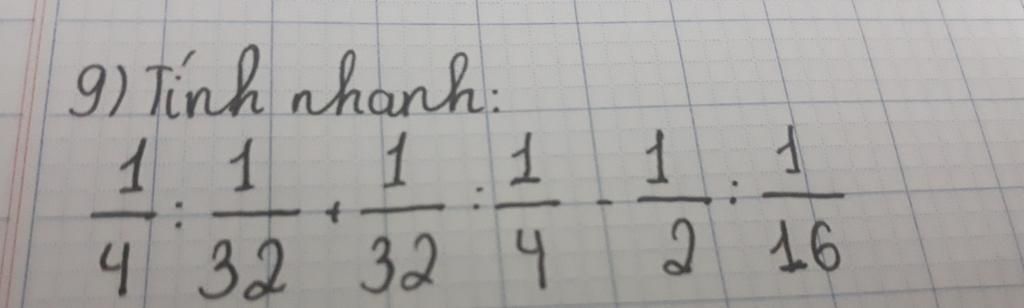 9) Tính nhanh:
1/4 : 1/32 + 1/32 : 1/4 - 1/2 : 1/16